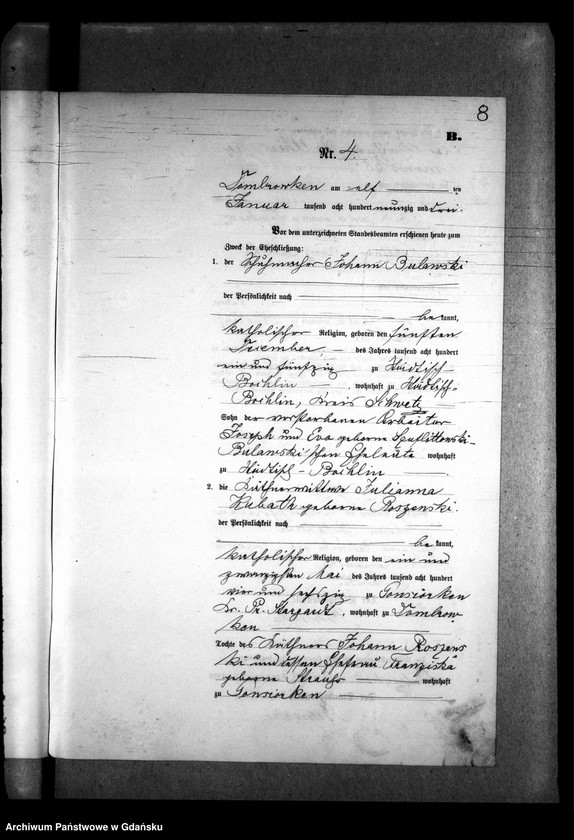 8
B.
Nr. 4.
Dombrowken am elf ten
Januar tausend acht hundert neunzig und drei.
Vor dem unterzeichneten Standesbeamten erschienen heute zum
Zweck der Eheschließung:
1. der Schuhmacher Johann Bulawski
der Persönlichkeit nach
be kannt,
katholischer Religion, geboren den fünften
Dezember, des Jahres tausend acht hundert
ein und fünfzig zu
wohnhaft zu
Kreis Schwetz
Sohn der verstorbenen Arbeiter
Joseph und Eva geborne
Bulawski'schen Eheleute wohnhaft
zu
2. die Käthnerwittwe Julianna
Kubath geborene Roszenski.
der Persönlichkeit nach
be kannt,
katholischer Religion, geboren den ein und
zwanzigsten Mai des Jahres tausend acht hundert
vier und sechszig zu Gonsiorken
Kr. Pr. Stargard, wohnhaft zu Dombrow
ken
Tochter des Käthners Johann Roszens
ki und dessen Ehefrau Franziska
geborne wohnhaft
zu Gonsiorken
Archiwum Państwowe w Gdańsku